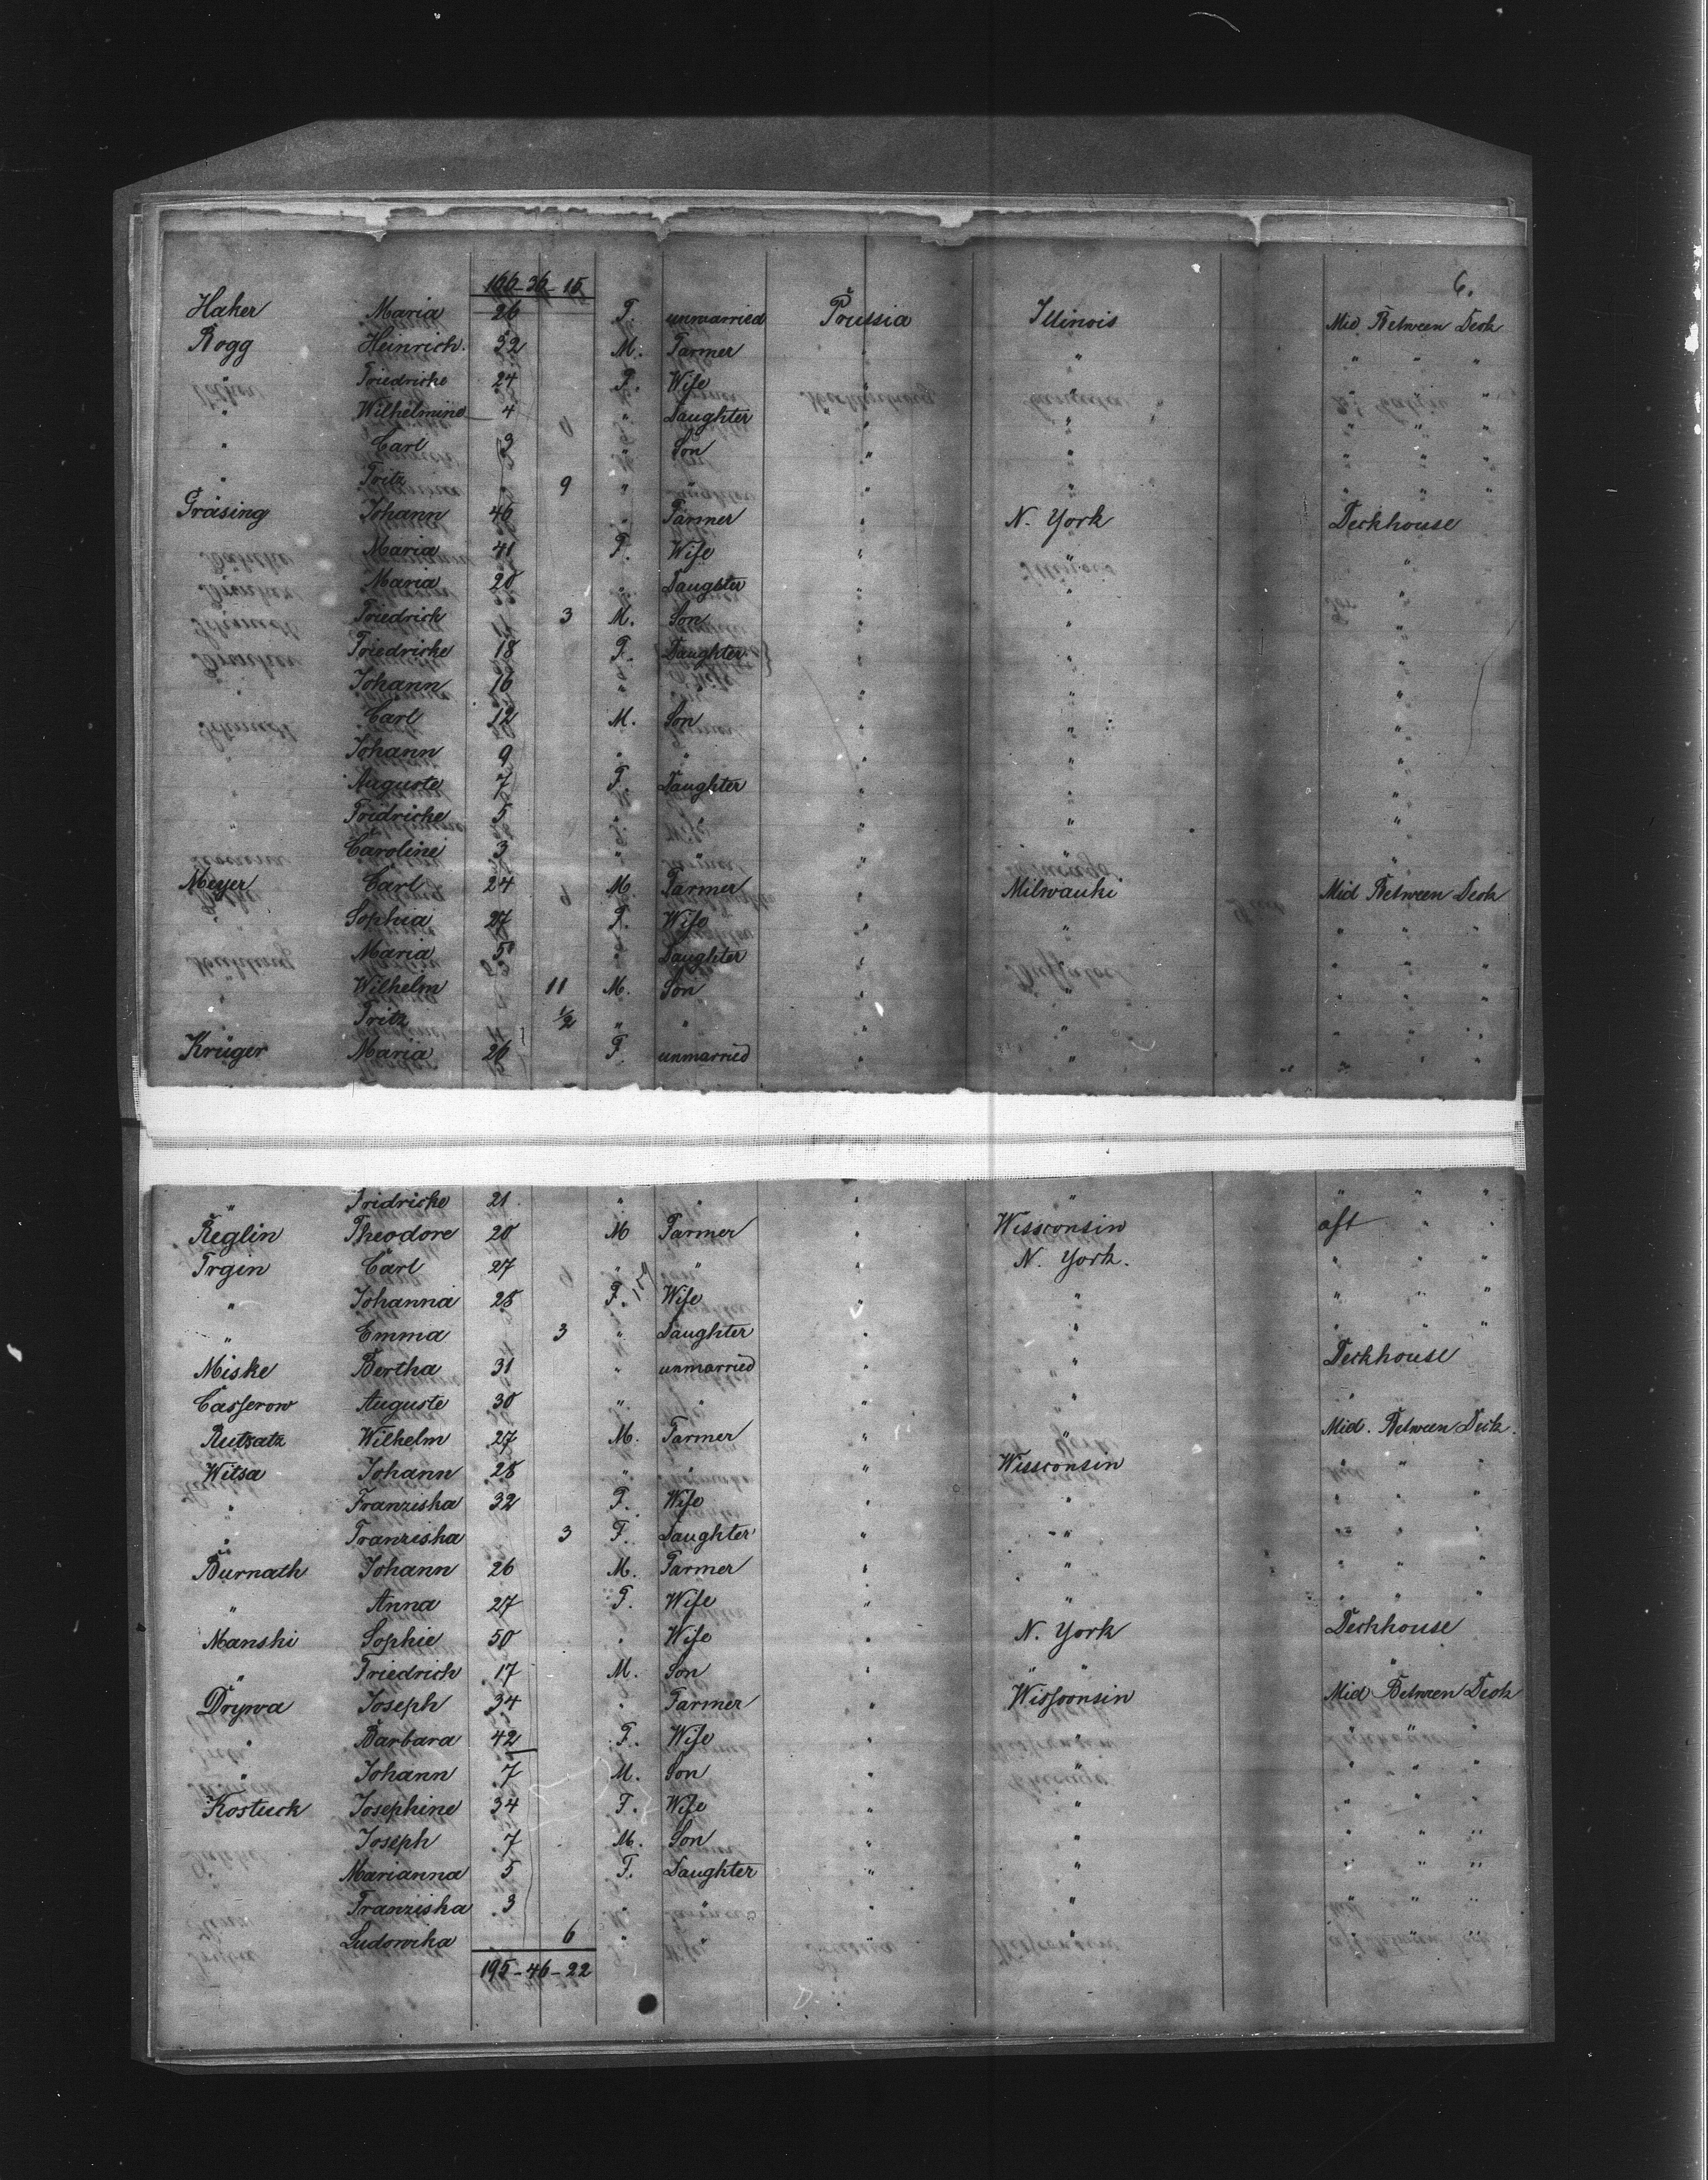 6.
166-36-15
Haker Maria 26 F. unmarried Prussia Illinois Mid Between Deck
Rogg Heinrich. 32 M. Farmer " " " " "
" Friedrike 24 F. Wife " " " " "
" Wilhelmine 4 " Daughter " " " " "
" Carl 3 " Son " " " " "
" Fritz 9 " " " " " " "
Gräsing Johann 46 " Farmer " N. York Deckhouse
Maria 41 F. Wife " "
Maria 20 " Daugster " " "
Friedrich 3 M. Son " " "
Friedricke 18 F. Daughter " " "
Johann 16 " " " " "
Carl 12 M. Son " " "
Johann 9 " " " " "
Auguste 7 F. Daughter " " "
Fridricke 5 " " " " "
Caroline 3 " " " "
Meyer Carl 24 M. Farmer " Milwauki Mid Between Deck
" Sophia 27 F. Wife " " " " "
Maria 5 " Daughter " " " "
" Wilhelm 11 M. Son " " " " "
Fritz 1/2 " " " " " " "
Krüger Maria 26 F. unmarried " " " " "
" Fridricke 21 " " " " " " "
Reglin Theodore 20 M Farmer " Wissconsin aft " "
Trgen Carl 27 " " " N. York. " " "
" Johanna 28 F. Wife " " " " "
" Emma 3 " Daughter " " " " "
Miske Bertha 31 " unmarried " " Deckhouse
Casserow Auguste 30 " " " " "
Rutzatz Wilhelm 27 M. Farmer " " Mid. Between Deck.
Witsa Johann 28 " " " Wissconsin " " "
" Franziska 32 F. Wife " " " " "
" Franziska 3 F. Daughter " " " " "
Burnath Johann 26 M. Farmer " " " " "
" Anna 27 F. Wife " " " " "
Manski Sophie 50 " Wife " N. York Deckhouse
" Friedrich 17 M. Son " " " "
Drywa Joseph 34 " Farmer " Wissconsin Mid Between Deck
" Barbara 42 F. Wife " " " " "
" Johann 7 M. Son " " " " "
Kostuck Josephine 34 F. Wife " " " " "
Joseph 7 M. Son " " " " "
Marianna 5 F. Daughter " " " " "
Franziska 3 " " " " " "
Ludowika 6 " " " " " "
195-46-22